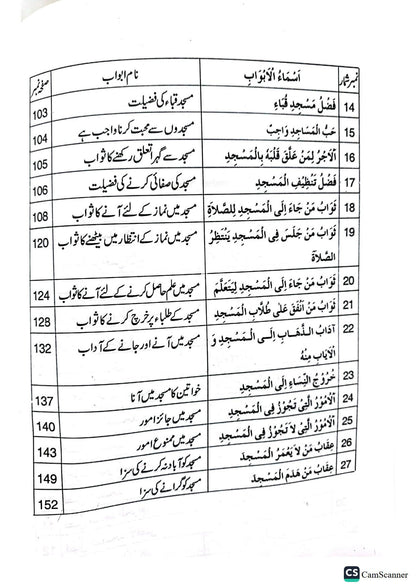 نمبرشمار اَسْمَاءُ الْاَبْوَابِ نام ابواب صفحہ نمبر
14 فَضْلُ مَسْجِدِ قُبَاءِ مسجد قباء کی فضیلت 103
15 حَبُّ الْمَسَاجِدِ وَاجِبٌ مسجدوں سے محبت کرنا واجب ہے 104
16 اَلْاَجْرُ لِمَنْ عَلَّقَ قَلْبَهُ بِالْمَسْجِدِ مسجد سے گہرا تعلق رکھنے کا ثواب 105
17 فَضْلُ تَنْظِيْفِ الْمَسْجِدِ مسجد کی صفائی کرنے کی فضیلت 106
18 ثَوَابُ مَنْ جَاءَ اِلَى الْمَسْجِدِ لِلصَّلَاةِ مسجد میں نماز کے لئے آنے کا ثواب 108
19 ثَوَابُ مَنْ جَلَسَ فِى الْمَسْجِدِ يَنْتَظِرُ مسجد میں نماز کے انتظار میں بیٹھنے کا ثواب 120
الصَّلَاةَ
20 ثَوَابُ مَنْ جَاءَ اِلَى الْمَسْجِدِ لِيَتَعَلَّمَ مسجد میں علم حاصل کرنے کے لئے آنے کا ثواب 124
21 ثَوَابُ مَنْ اَنْفَقَ عَلٰى طُلَّابِ الْمَسْجِدِ مسجد کے طلباء پر خرچ کرنے کا ثواب 128
22 آدَابُ الذَّهَابِ اِلَى الْمَسْجِدِ وَ مسجد میں آنے اور جانے کے آداب 132
الْاِيَابِ مِنْهُ
23 خُرُوْجُ النِّسَاءِ اِلَى الْمَسْجِدِ خواتین کا مسجد میں آنا 137
24 اَلْاُمُوْرُ الَّتِىْ تَجُوْزُ فِى الْمَسْجِدِ مسجد میں جائز امور 140
25 اَلْاُمُوْرُ الَّتِىْ لَا تَجُوْزُ فِى الْمَسْجِدِ مسجد میں ممنوع امور 143
26 عِقَابُ مَنْ لَا يَعْمُرُ الْمَسْجِدَ مسجد کو آباد نہ کرنے کی سزا 149
27 عِقَابُ مَنْ هَدَمَ الْمَسْجِدَ مسجد کو گرانے کی سزا 152
CS CamScanner